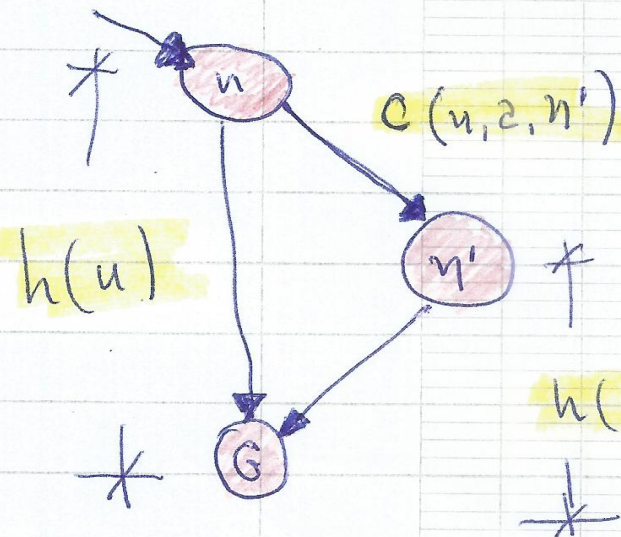 n
c(n,a,n')
n'
h(n)
h(
G